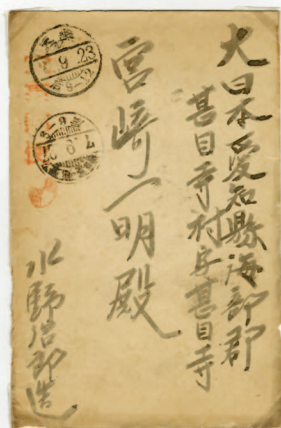 大日本愛知縣海部郡
甚目寺村字甚目寺
宮崎一明殿
水野治郎造
9.23